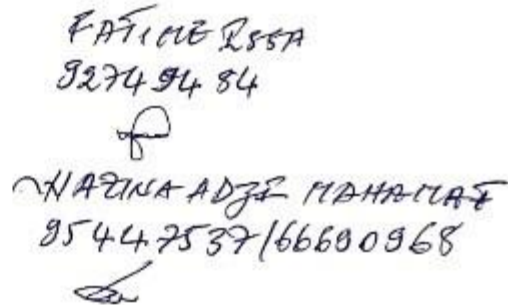 FATIME ISSA
92749484
HAZINA ADJI MAHAMAT
95447537/66690968